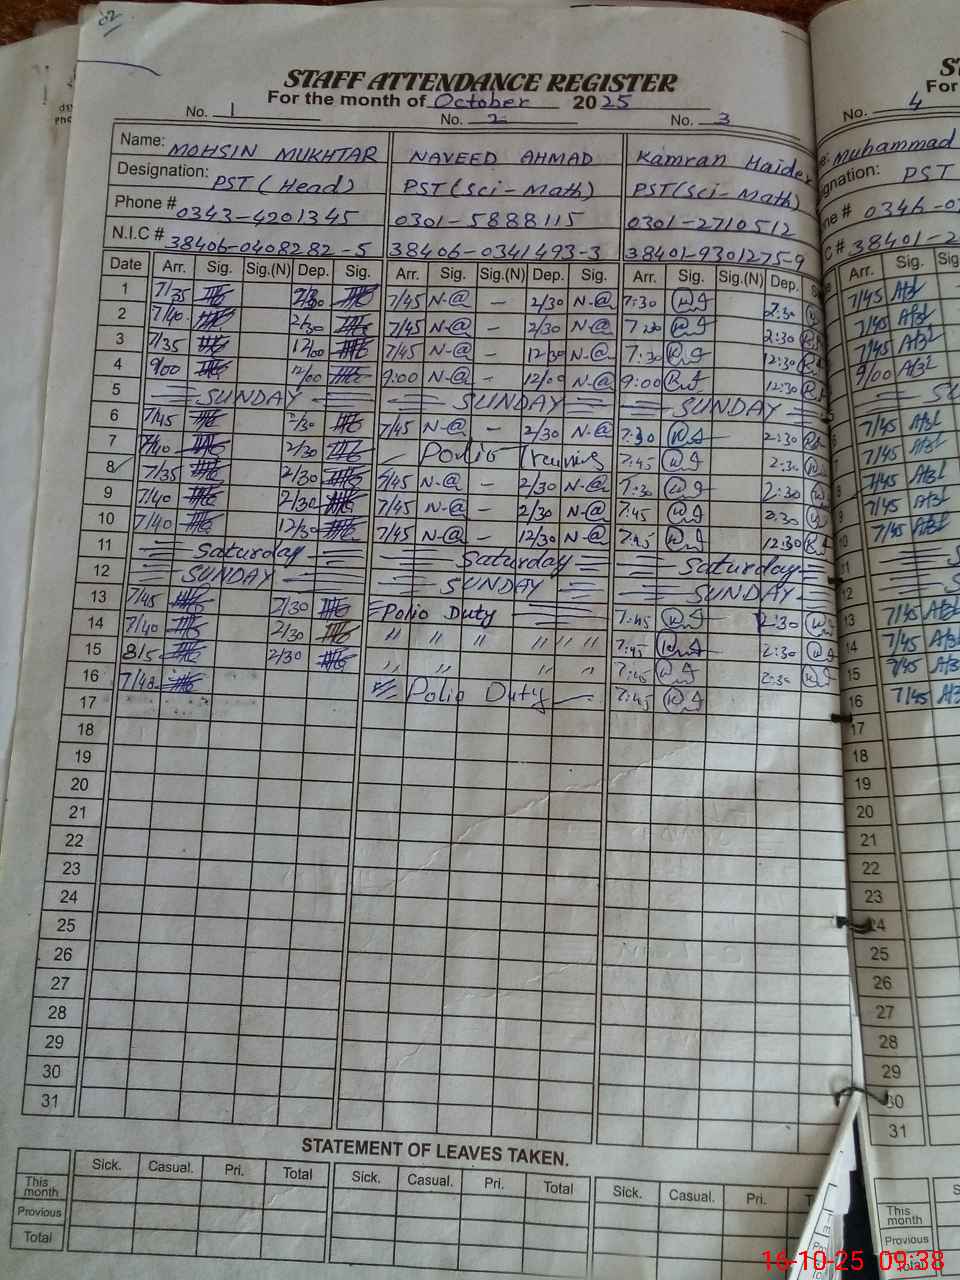 STAFF ATTENDANCE REGISTER
For the month of October 2025
No. 1 No. 2 No. 3
Name: MOHSIN MUKHTAR NAVEED AHMAD Kamran Haider
Designation: PST (Head) PST (Sci-Math) PST (Sci-Math)
Phone # 0343-4201345 0301-5888115 0301-2710512
N.I.C # 38406-0408282-5 38406-0341493-3 38401-9301275-9
Date Arr. Sig. Sig.(N) Dep. Sig. Arr. Sig. Sig.(N) Dep. Sig. Arr. Sig. Sig.(N) Dep.
1 7/35 2/30 7/45 N-@ - 2/30 N-@ 7:30 2:30
2 7/40 2/30 7/45 N-@ - 2/30 N-@ 7:30 2:30
3 7/35 12/00 7/45 N-@ - 12/30 N-@ 7:30 12:30
4 9/00 12/00 9:00 N-@ - 12/00 N-@ 9:00 12:30
5 SUNDAY SUNDAY SUNDAY
6 7/45 2/30 7/45 N-@ - 2/30 N-@ 7:30 2:30
7 7/40 2/30 Polio Training 7:45 2:30
8 7/35 2/30 7/45 N-@ - 2/30 N-@ 7:30 2:30
9 7/40 2/30 7/45 N-@ - 2/30 N-@ 7:45 2:30
10 7/40 12/30 7/45 N-@ - 12/30 N-@ 7:45 12:30
11 Saturday Saturday Saturday
12 SUNDAY SUNDAY SUNDAY
13 7/45 2/30 Polio Duty 7:45 2:30
14 7/40 2/30 " " " " " " 7:45 2:30
15 8/5 2/30 " " " " 7:45 2:30
16 7/40 Polio Duty 7:45
17
18
19
20
21
22
23
24
25
26
27
28
29
30
31
STATEMENT OF LEAVES TAKEN.
Sick. Casual. Pri. Total Sick. Casual. Pri. Total Sick. Casual. Pri.
This month
Previous
Total
No. 4
Muhammad
PST
0346-0
38401-2
Arr. Sig.
7/45
7/45
7/45
9/00
7/45
7/45
7/45
7/45
7/45
13 7/45
14 7/45
15 7/45
16 7/45
17
18
19
20
21
22
23
24
25
26
27
28
29
30
31
This month
Previous
Total
16-10-25 09:38